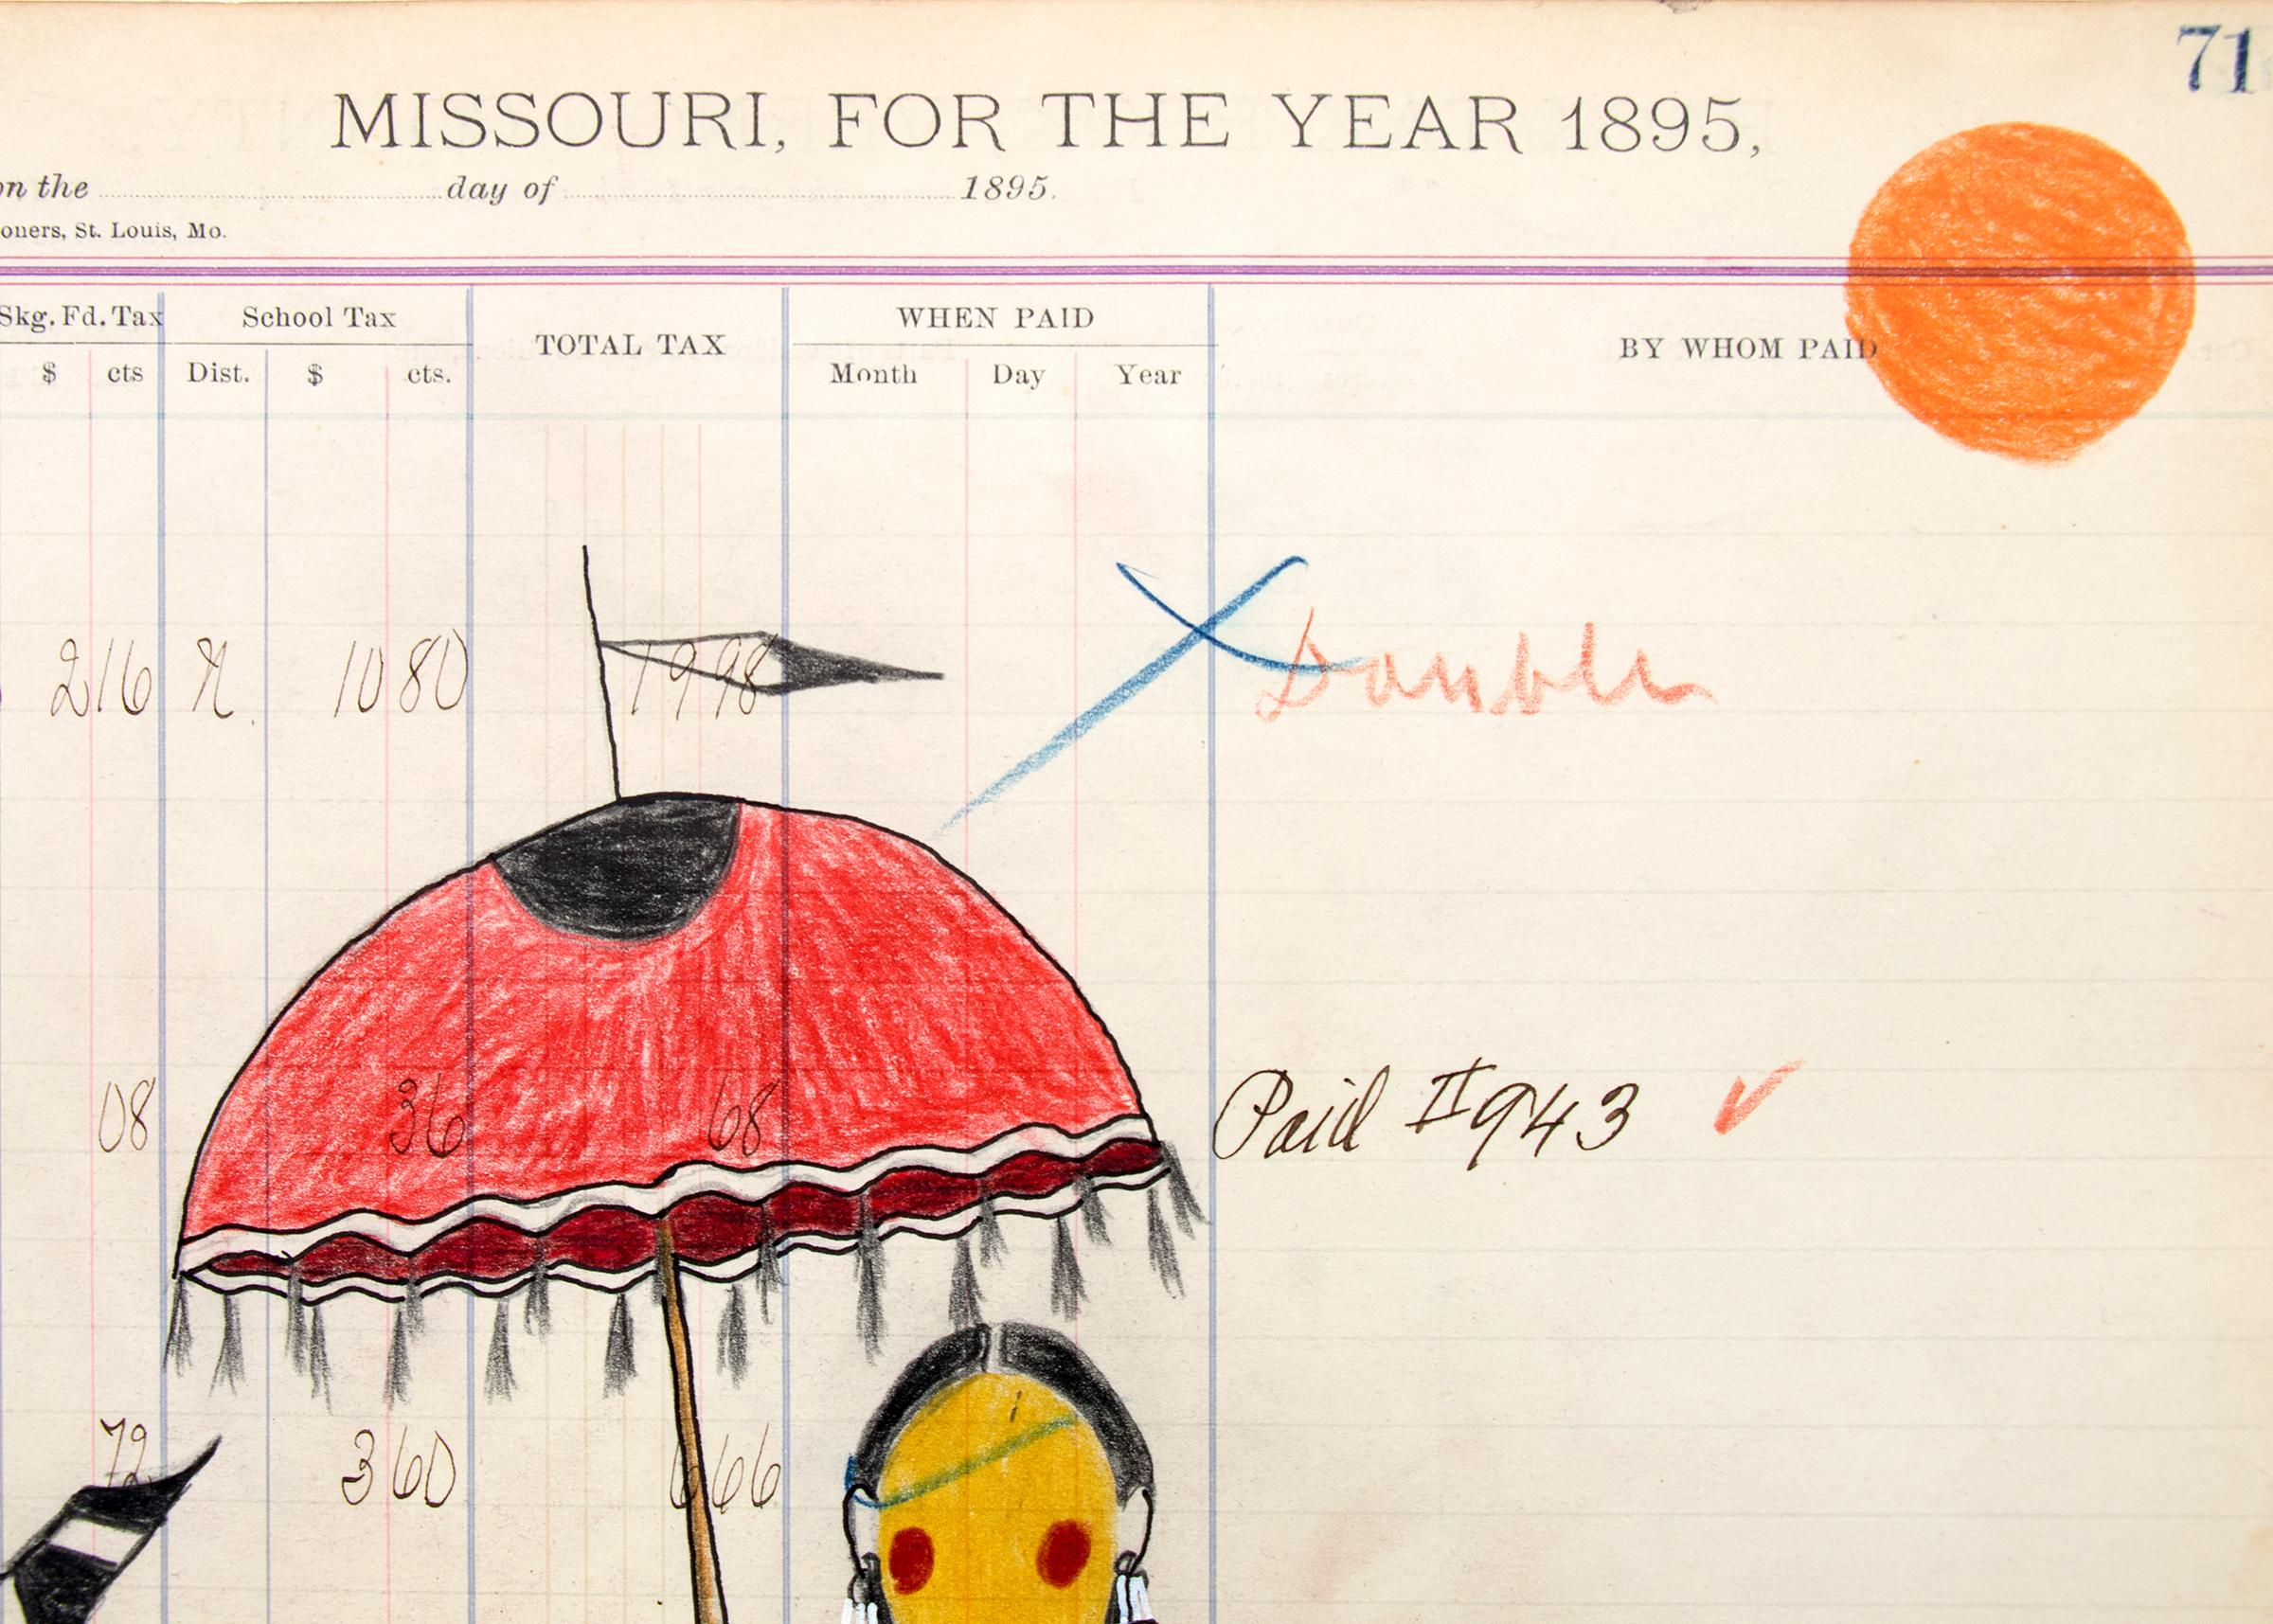 71
MISSOURI, FOR THE YEAR 1895,
on the day of 1895.
oners, St. Louis, Mo.
Skg. Fd. Tax School Tax TOTAL TAX WHEN PAID BY WHOM PAID
$ cts Dist. $ cts. Month Day Year
2 16 10 80 19 98 Double
08 36 68 Paid #943 ✓
72 3 60 6 66